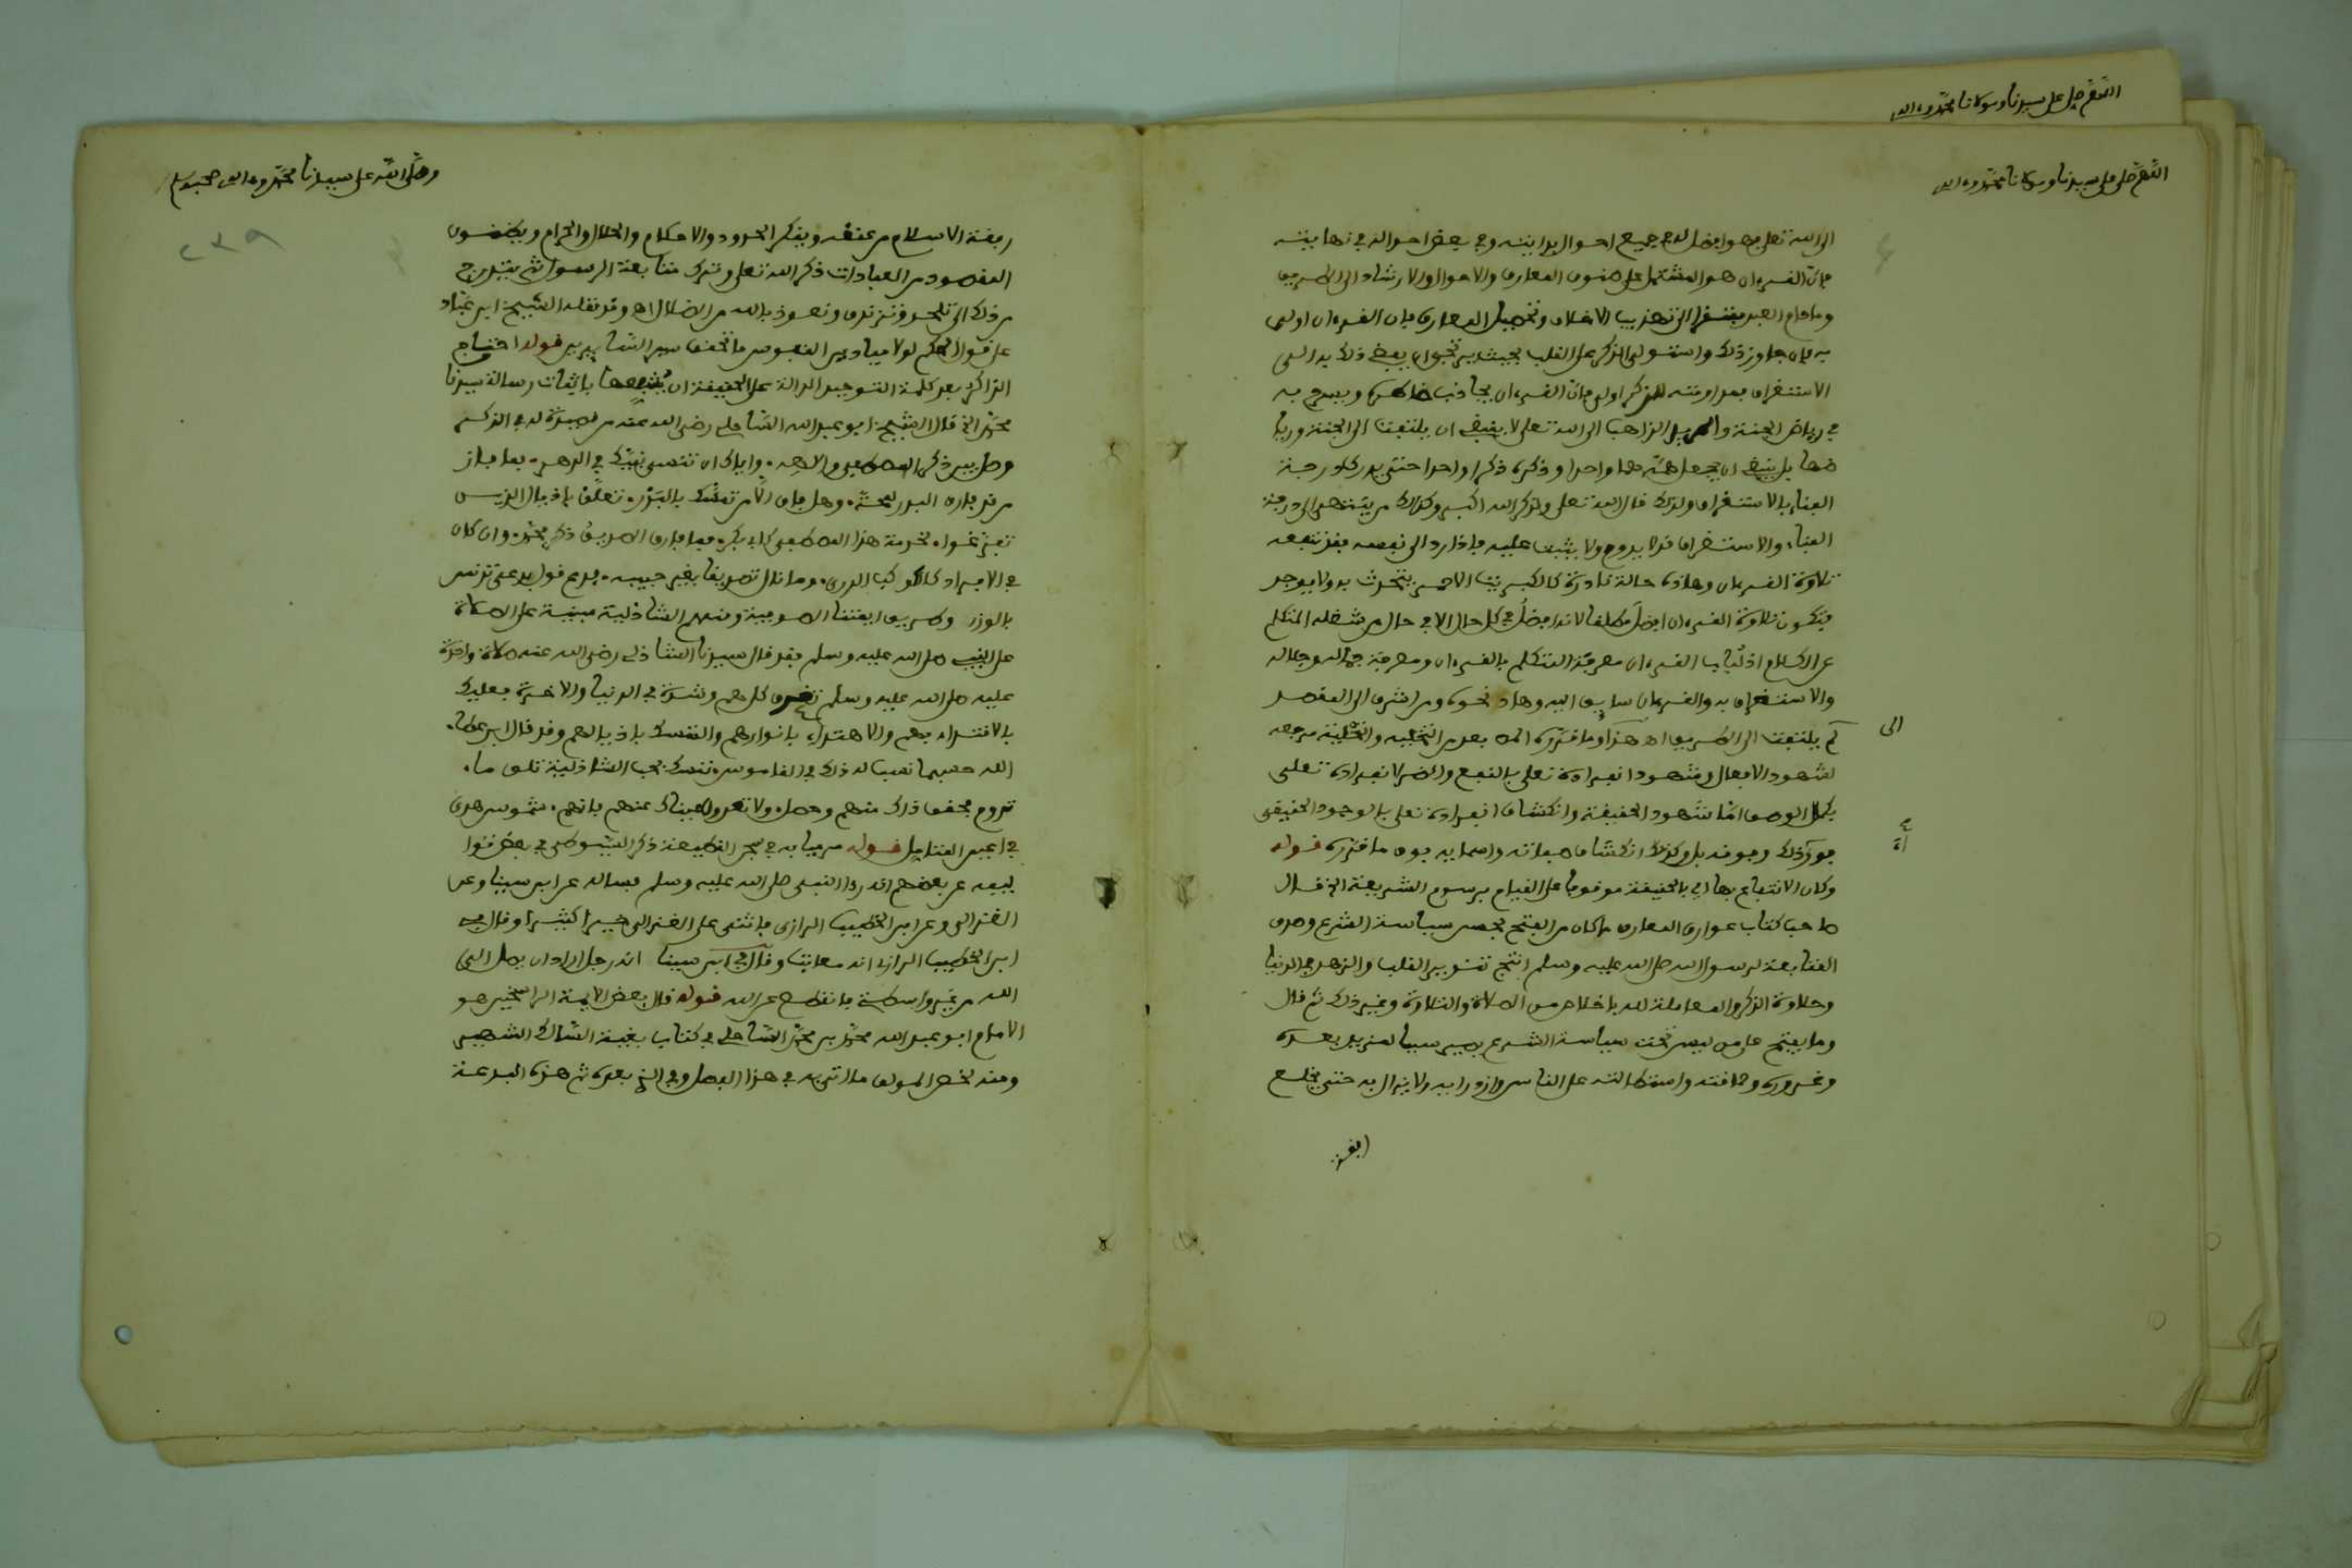 اللهم صل على سيدنا ومولانا محمد وءاله
اللهم صل على سيدنا ومولانا محمد وءاله
الى الله تعلى فهو افضل له في جميع احوال بدايته وفي بعض احواله في نهايته
فان القرءان هو المشتمل على صنوف المعارف والاحوال والارشاد الى الطريق
وما دام العبد مفتقرا الى تهذيب الاخلاق وتحصيل المعارف فان القرءان اولى
به فان جاوز ذلك واستولى الذكر على القلب بحيث يرتجى ان يفضي ذلك به الى
الاستغراق فمداومته للذكر اولى فان القرءان يجاذب خاطره ويسرح به
في رياض الجنة والمريد الذاهب الى الله تعلى لا ينبغي ان يلتفت الى الجنة ورياضها
بل ينبغي ان يجعل همه هما واحدا وذكره ذكرا واحدا حتى يدرك درجة
الفناء والاستغراق ولذلك قال الله تعلى ولذكر الله اكبر وكذلك من ينتهي الى درجة
الفناء والاستغراق قد لا يدوم ولا يثبت عليه فاذا رد الى نفسه فقد تنفعه
تلاوة القرءان وهذه حالة نادرة كالكبريت الاحمر يتحدث به ولا يوجد
فتكون تلاوة القرءان افضل مطلقا لانه افضل في كل حال الا في حال من شغله المتكلم
عن الكلام اذ لباب القرءان معرفة المتكلم بالقرءان ومعرفة جماله وجلاله
والاستغراق به والقرءان سايق اليه وهاد نحوه ومن اشرف الى المقصد
لم يلتفت الى الطريق اه هذا وما قرره الص بعد من التخلية والتحلية مرجعه
الى
لشهود الافعال وشهود انفراده تعلى بالنفع والضر لانفراده تعلى
بكمال الوصف اما شهود الحقيقة وانكشاف انفراده تعلى بالوجود الحقيقي
فوق ذلك وفوقه بل وكذلك انكشاف صفاته واسمايه فوق ما قرره قوله
وكان الانتفاع بها اي بالحقيقة موقوفا على القيام برسوم الشريعة الخ قال
صاحب كتاب عوارف المعارف ما كان من الفتح بحصر سياسة الشرع وصدق
المتابعة لرسول الله صلى الله عليه وسلم انتج تنوير القلب والزهد في الدنيا
وحلاوة الذكر والمعاملة لله باخلاص من الصلاة والتلاوة وغير ذلك ثم قال
وما يفتح على من ليس تحت سياسة الشرع يصير سببا لمزيد بعده
وغروره وحماقته واستطالته على الناس وازدرايه ولا يزال به حتى يخلع
وصلى الله على سيدنا محمد وءاله وصحبه وسلم
٢٣٩
ربقة الاسلام من عنقه وينكر الحدود والاحكام والحلال والحرام ويظن ان
المقصود من العبادات ذكر الله تعلى وترك متابعة الرسول ثم يتدرج
من ذلك الى تلحد وتزندق ونعوذ بالله من الضلال اه وقد نقله الشيخ ابن عباد
على قول الحكم لولا ميادين النفوس ما تحقق سير السايرين قوله احتاج
الذاكر بعد كلمة التوحيد الدالة على الحقيقة ان يشفعها باثبات رسالة سيدنا
محمد الخ قال الشيخ ابو عبد الله الساحلي رضى الله عنه من قصيدة له في الذكر
وصل بين ذكر المصطفى والاهه، واياك ان تنسى نبيك في الدهر، فما فاز
من قد فاره البدر لمحة، وهل فاز الا من تمسك بالبدر، تعلق باذيال الذي
في الانبياء كالكوكب الدري، وما نال تصريفا بغير حبيبه، فدع قول بدعي تدنس
بالوزر وطريق ايمتنا الصوفية ومنهم الشاذلية مبنية على الصلاة
على النبي صلى الله عليه وسلم فقد قال سيدنا الشاذلي رضى الله عنه صلاة واحدة
عليه صلى الله عليه وسلم تفرج كل هم وشدة في الدنيا والاخرة فعليك
بالاقتداء بهم والاهتداء بانوارهم والتمسك باذيالهم وقد قال ابن عطاء
الله حسبما نسب له ذلك في القاموس تمسك بحب الشاذلية تلق ما،
تروم فحقق ذاك منهم وحصل، ولا تعدون عيناك عنهم فانهم، شموس هدى
في اعين المتامل قوله فرميا به في بحر القطيعة ذكر السيوطي في بعض تواليفه
عن بعضهم انه رءا النبي صلى الله عليه وسلم فساله عن ابن سينا وعن
الغزالي وعن ابن الخطيب الرازي فاثنى على الغزالي خيرا كثيرا وقال في
ابن الخطيب الرازي انه معاتب وقال في ابن سينا انه رجل اراد ان يصل الى
الله من غير واسطة فانقطع عن الله قوله قال بعض الايمة الراسخين هو
الامام ابو عبد الله محمد بن محمد الساحلي في كتاب بغية السالك الشهير
ومنه لخص المولف ما اتى به في هذا الفصل وفي الذي بعده ثم هذه البدعة